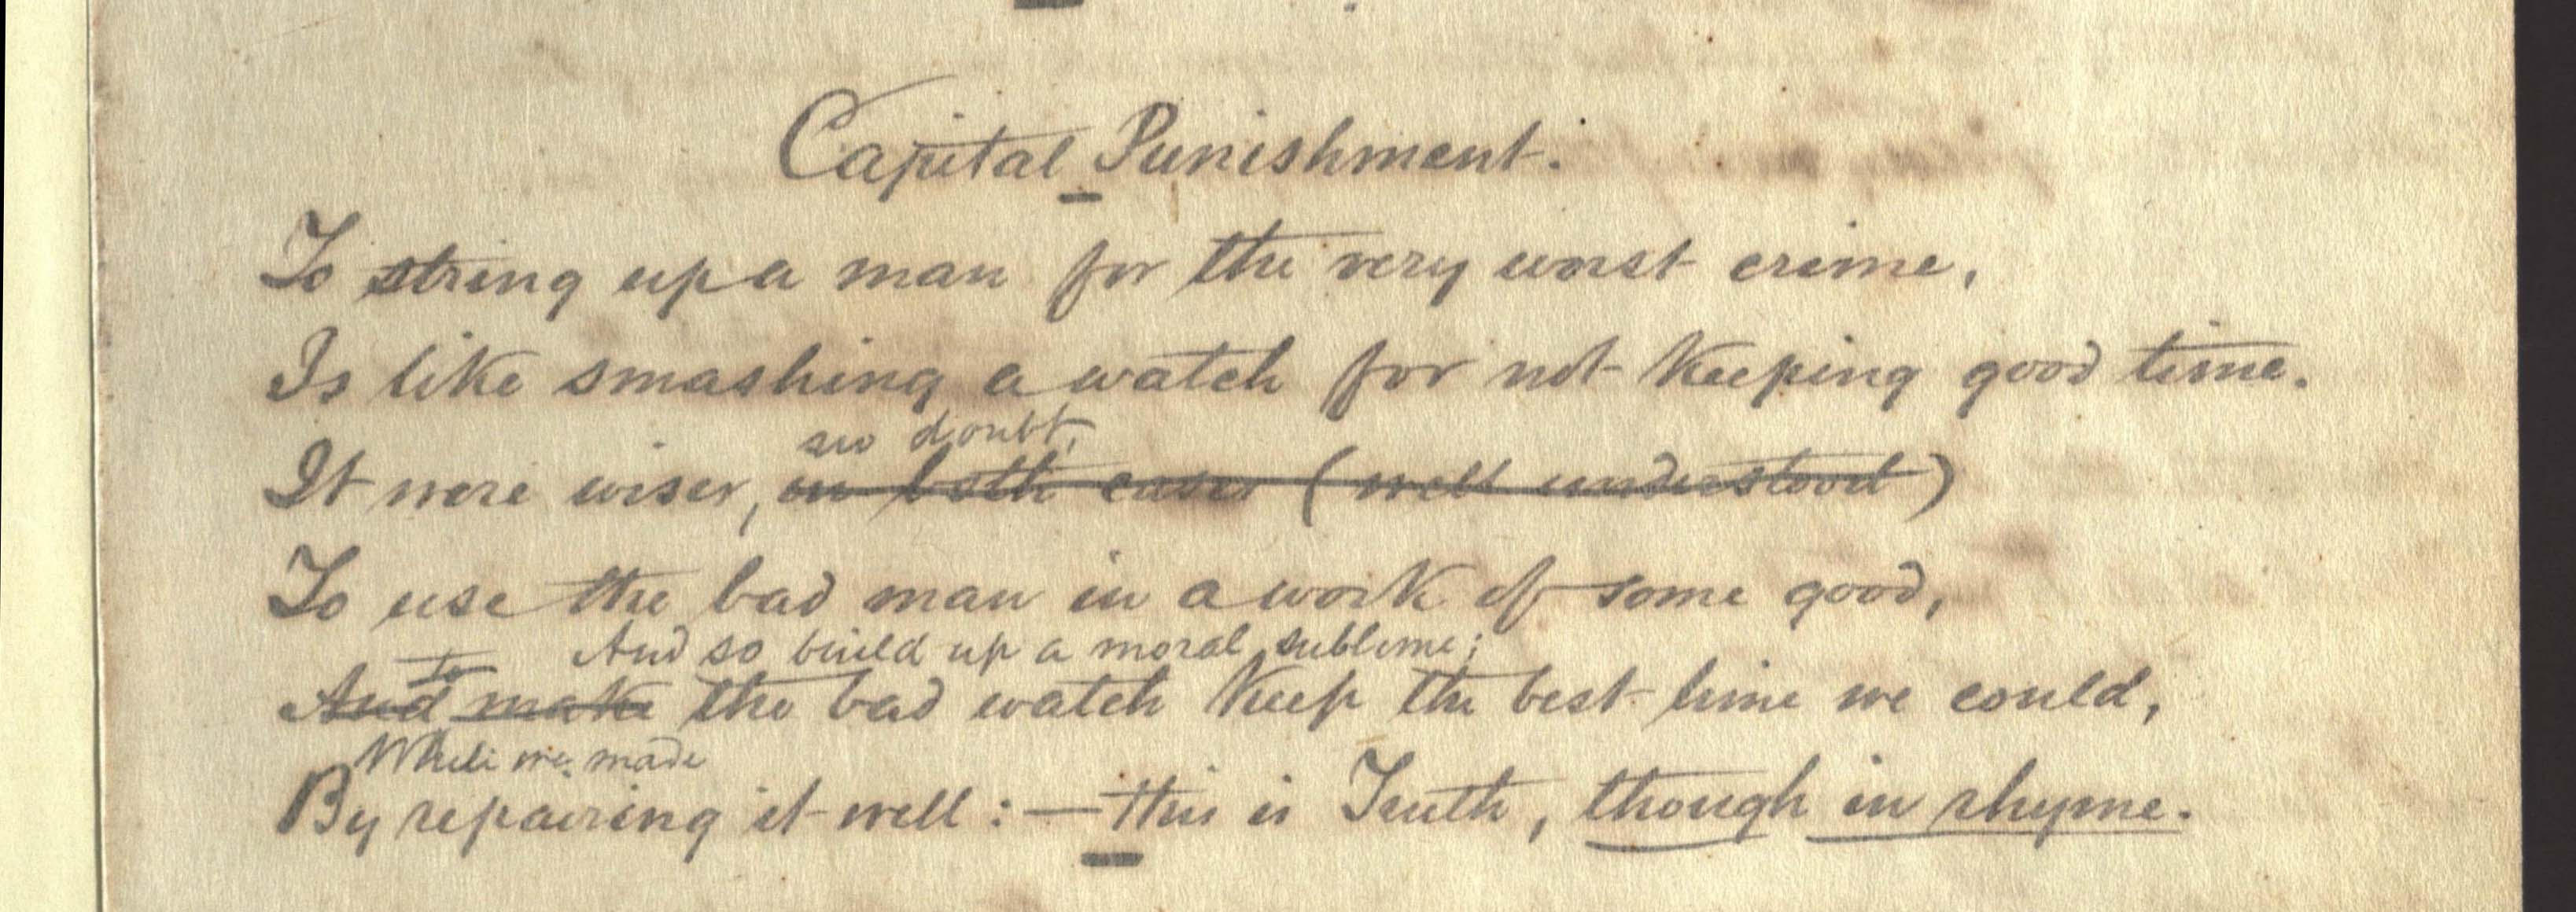 Capital Punishment.
To string up a man for the very worst crime,
Is like smashing a watch for not keeping good time.
no doubt,
It were wiser, in both cases (well understood)
To use the bad man in a work of some good,
And so build up a moral sublime;
to
And make the bad watch keep the best time we could,
While we made
By repairing it well: — this is Truth, though in rhyme.